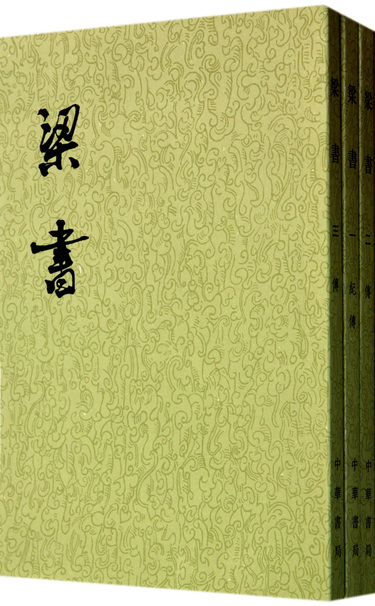 梁書
梁書 三 傳
中華書局
梁書 一 紀傳
中華書局
梁書 二 傳
中華書局